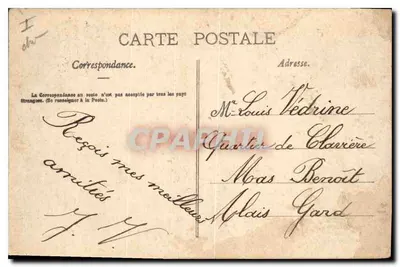 CARTE POSTALE
Correspondance.
La Correspondance au recto n'est pas acceptée par tous les pays
étrangers. (Se renseigner à la Poste.)
Reçois mes meilleures
amitiés
J. V.
Adresse.
Mr Louis Védrine
Quartier de Clavière
Mas Benoît
Alais Gard
CARPHIL